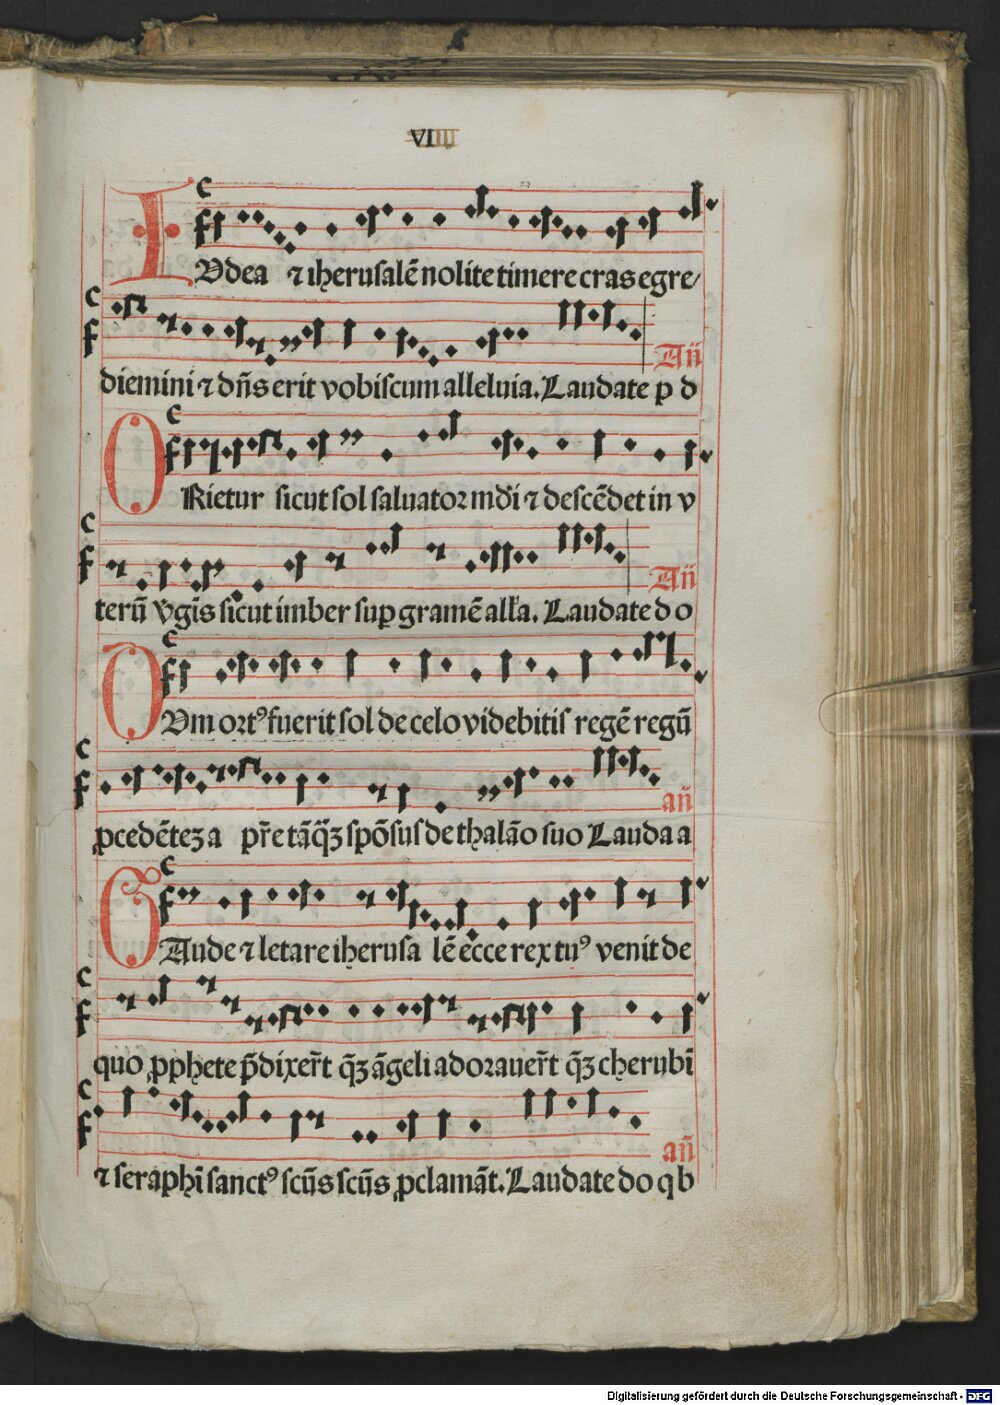 VIIII
IUdea ⁊ iherusalē nolite timere cras egre/
diemini ⁊ dn̄s erit vobiscum alleluia. Laudate p d
An̄
ORietur sicut sol saluator mūdi ⁊ descēdet in v
terū v̄gīs sicut imber sup gramē allꝛa. Laudate d o
An̄
OUm ortꝰ fuerit sol de celo videbitis regē regū
ꝓcedētez a pr̄e tāq̄ꝫ spōsus de thalāo suo Lauda a
an̄
GAude ⁊ letare iherusalē ecce rex tuꝰ venit de
quo ꝓphete p̄dixer̄t q̄ꝫ āgeli adorauer̄t q̄ꝫ cherubī
⁊ seraphī sanctꝰ scūs scūs ꝓclamāt. Laudate do q b
an̄
Digitalisierung gefördert durch die Deutsche Forschungsgemeinschaft - DFG